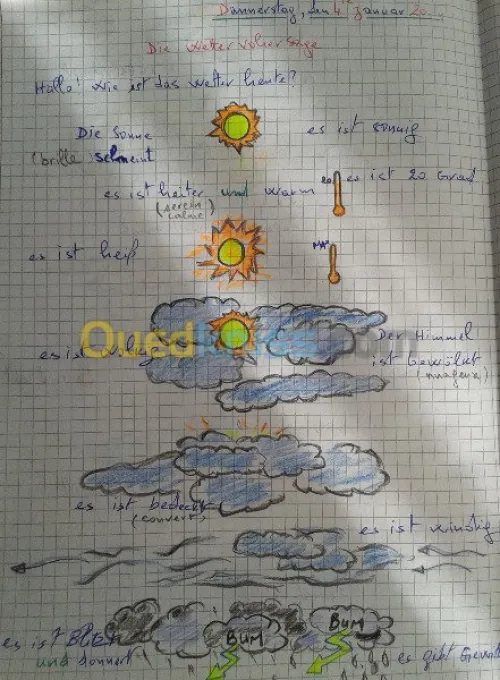 Donnerstag, den 4 Januar 20
Die Wettervohersage
Hallo! Wie ist das Wetter heute?
Die Sonne
(brille) scheint
es ist sonnig
es ist heiter und warm
(serein
calme)
20° es ist 20 Grad
es ist heiß
es ist
Der Himmel
ist bewölkt
(nuageux)
Ouedkniss
es ist bedeckt
(couvert)
es ist windig
BUM
BUM
es ist Blitzt
und donnert
es gibt